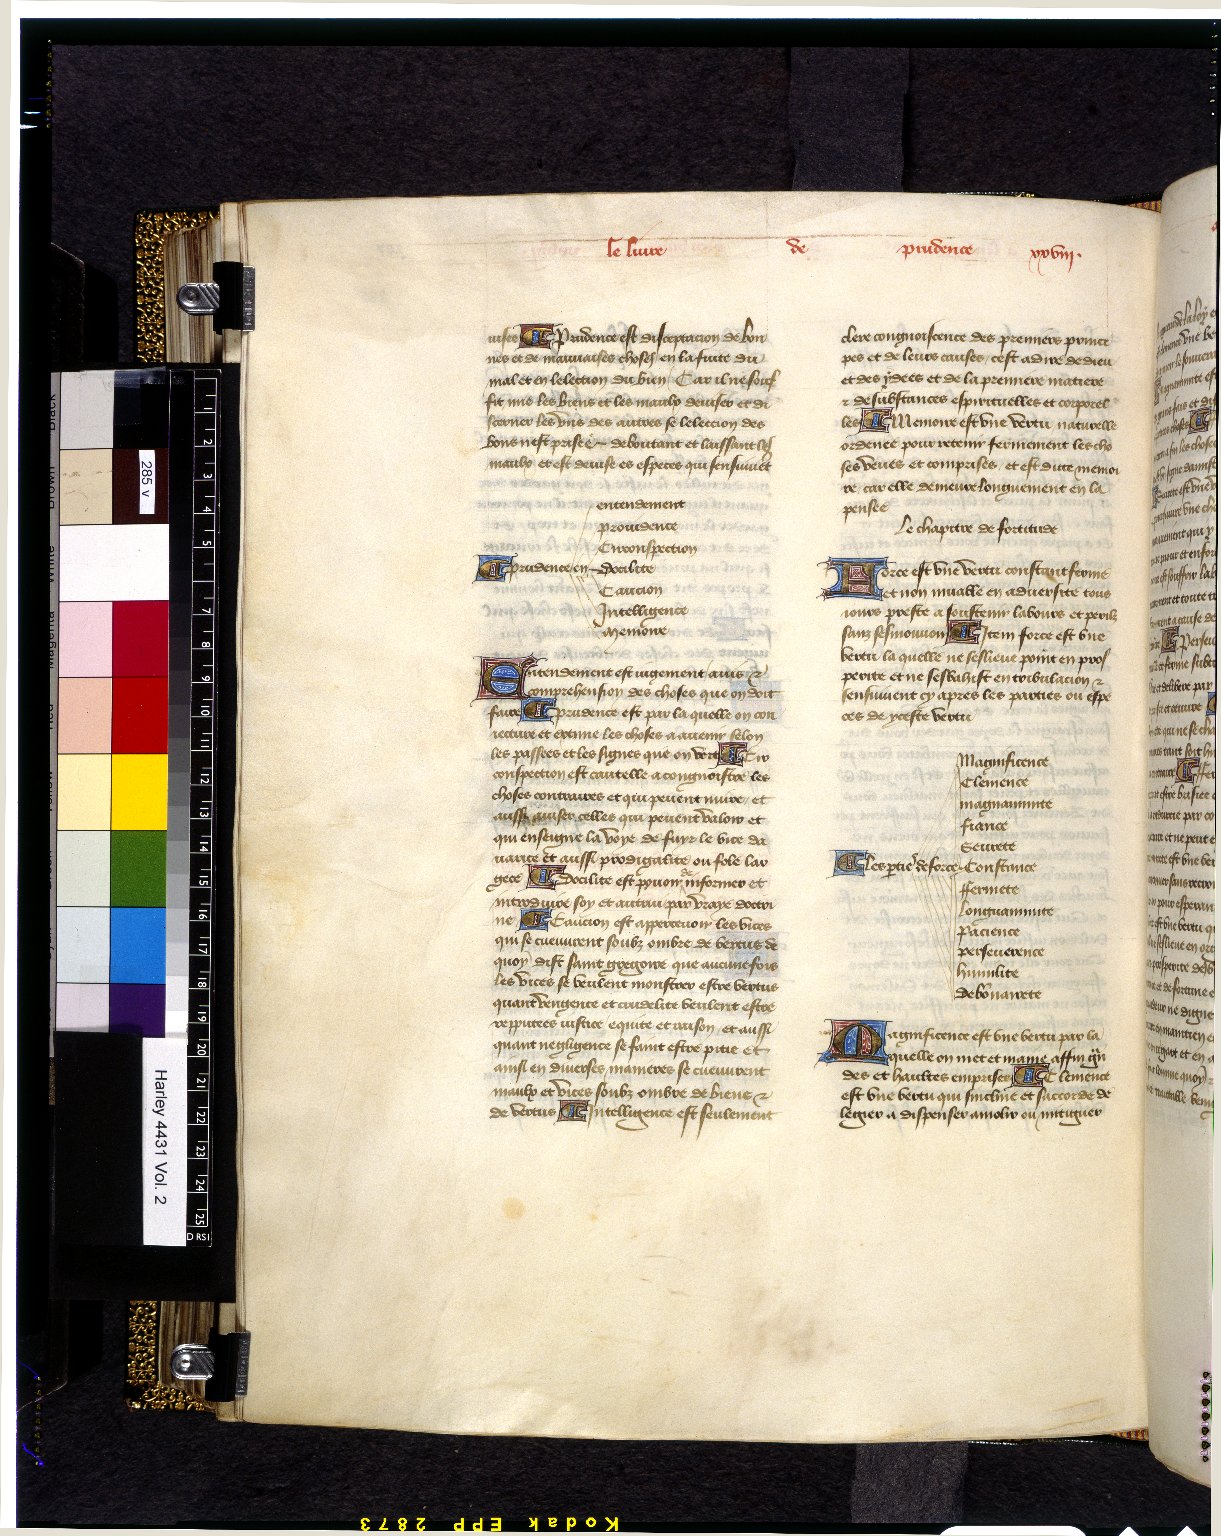 le liure de prudence xxviii.
uises Prudence est disceptacion de bon
nes et de mauuaises choses en la fuite du
mal et en lelection du bien Car il ne souf
fit mie les biens et les maulx deuiser et di
scerner les vns des autres se leleccion des
bons nest prisee deboutant et laissant les
maulx et est deuise es especes qui sensuiuet
entendement
prouidence
Circonspection
prudence en Docilite
Caucion
Intelligence
memoire
Entendement est iugement a uis &
comprehension des choses que on doit
faire prudence est par la quelle on con
iecture et extime les choses a auenir selon
les passees et les signes que on voit Cir
conspection est cautelle a congnoistre les
choses contraires et qui peuent nuire et
aussi auiser celles qui peuent valoir et
qui enseigne la voye de fuyr le vice da
uarice et aussi prodigalite ou fole lar
gece Docilite est pouoir de informer et
introduire soy et autrui par vraye doctri
ne Caucion est apperceuoir les vices
qui se cueuurent soubz ombre de vertus de
quoy dist saint gregoire que aucune fois
les vices se veulent monstrer estre vertus
quant vengence et crudelite veulent estre
repputees iustice equite et raison et aussi
quant negligence se faint estre pitie et
ainsi en diuerses manieres se cueuurent
maulx et vices soubz ombre de biens &
de vertus Intelligence est seulement
clere congnoiscence des premiers prince
pes et de leurs causes cest a dire de dieu
et des ydees et de la premiere matiere
& de substances espirituelles et corporel
les Memoire est vne vertu naturelle
ordenee pour retenir fermement les cho
ses veues et comprises et est dicte memoi
re car elle demeure longuement en la
pensee
Le chapitre de fortitude
Force est vne vertu constant ferme
et non muable en aduersite tous
iours preste a soustenir labours et perilz
sanz sesmouuoir Item force est vne
vertu la quelle ne seslieue point en pros
perite et ne sesbahist en tribulacion &
sensuiuent cy apres les parties ou espe
ces de yceste vertu
Magnificence
Clemence
magnanimite
fiance
Seurete
les ptie's de force Constance
ffermete
Longuanimite
Pacience
perseuerence
humilite
Debonairete
Magnificence est vne vertu par la
quelle on met et maine affin gn
des et haultes emprises Clemence
est vne vertu qui sincline et saccorde de
legier a dispenser amolir ou mitiguer
285 v
Harley 4431 Vol. 2
Kodak EPP 2873